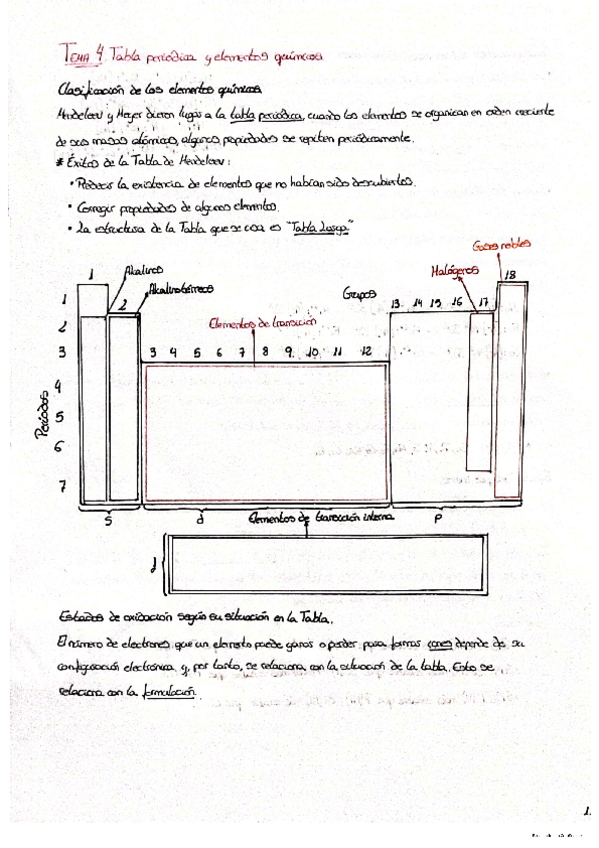 TEMA 4. Tabla periódica y elementos químicos
Clasificación de los elementos químicos
Mendeleev y Meyer dieron lugar a la tabla periódica, cuando los elementos se organizan en orden creciente
de sus masas atómicas, algunas propiedades se repiten periódicamente.
* Éxitos de la Tabla de Mendeleev:
• Predecir la existencia de elementos que no habían sido descubiertos.
• Corregir propiedades de algunos elementos.
• La estructura de la Tabla que se usa es "Tabla Larga"
Gases nobles
1 Alcalinos Halógenos 18
Alcalinotérreos
1 2 Grupos 13 14 15 16 17
2 Elementos de transición
3 3 4 5 6 7 8 9 10 11 12
4
Períodos
5
6
7
s d Elementos de transición interna p
f
Estados de oxidación según su situación en la Tabla.
El número de electrones que un elemento puede ganar o perder para formar iones depende de su
configuración electrónica y, por tanto, se relaciona con la situación de la tabla. Esto se
relaciona con la formulación.
1.